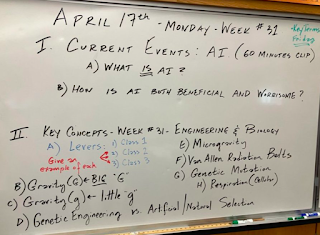 APRIL 17th - MONDAY - WEEK #31
Key Terms Friday
I. CURRENT EVENTS: AI (60 MINUTES CLIP)
A) WHAT IS AI?
B) HOW IS AI BOTH BENEFICIAL AND WORRISOME?
II KEY CONCEPTS - WEEK #31 - ENGINEERING & BIOLOGY
A) Levers: 1) Class 1
2) Class 2
3) Class 3
Give an example of each
B) Gravity (G) ← BIG "G"
C) Gravity (g) ← little "g"
D) Genetic Engineering vs. Artificial/Natural Selection
E) Microgravity
F) Van Allen Radiation Belts
G) Genetic Mutation
H) Respiration (Cellular)